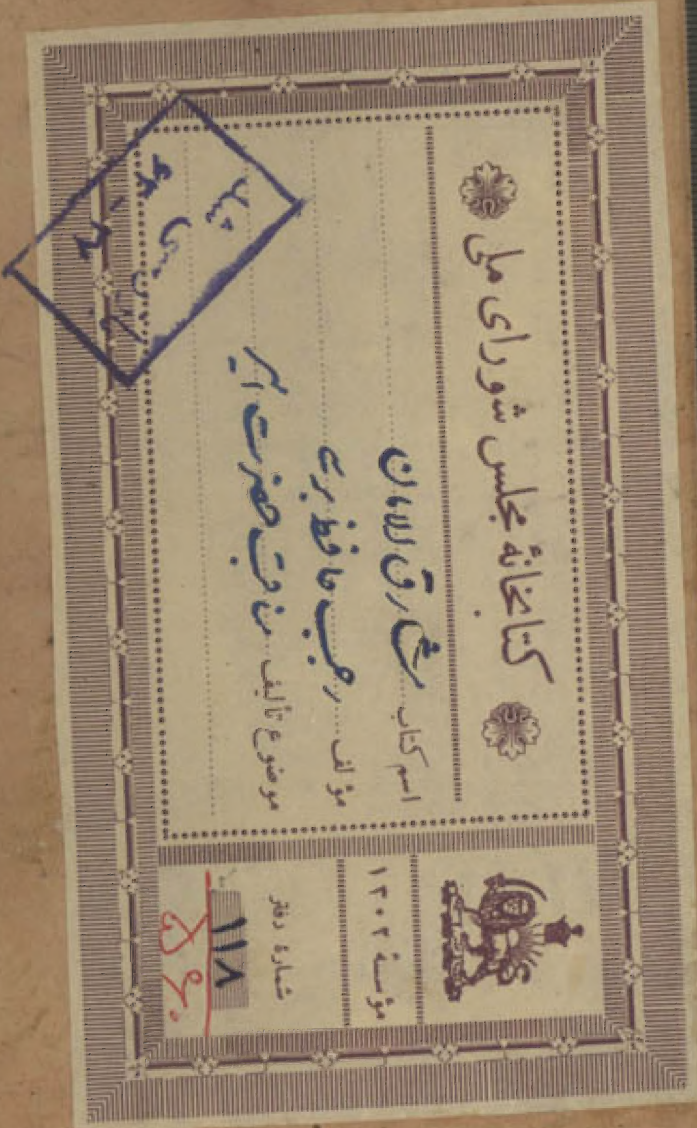 کتابخانهٔ مجلس شورای ملی
اسم کتاب مشارق الامان
مؤلف رجب حافظ برسی
موضوع تألیف مناقب حضرت امیر
مؤسسهٔ ۱۳۰۲
شمارهٔ دفتر
۱۱۸
بازرسی شد